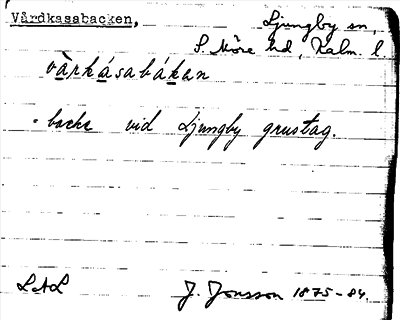 Vårdkasabacken, Ljungby sn,
S Möre hd, Kalm. l
vàrkásabákan
backe vid Ljungby grustag.
LAL J. Jonsson 1875-84.